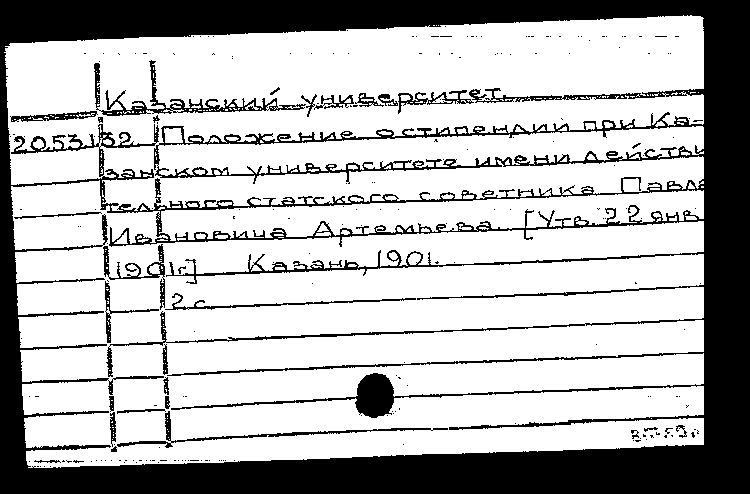 Казанский университет.
20.53.132 Положение о стипендии при Ка-
занском университете имени действи
тельного статского советника Павла
Ивановича Артемьева. [Утв. 22 янв.
1901г.] Казань, 1901.
2 с.